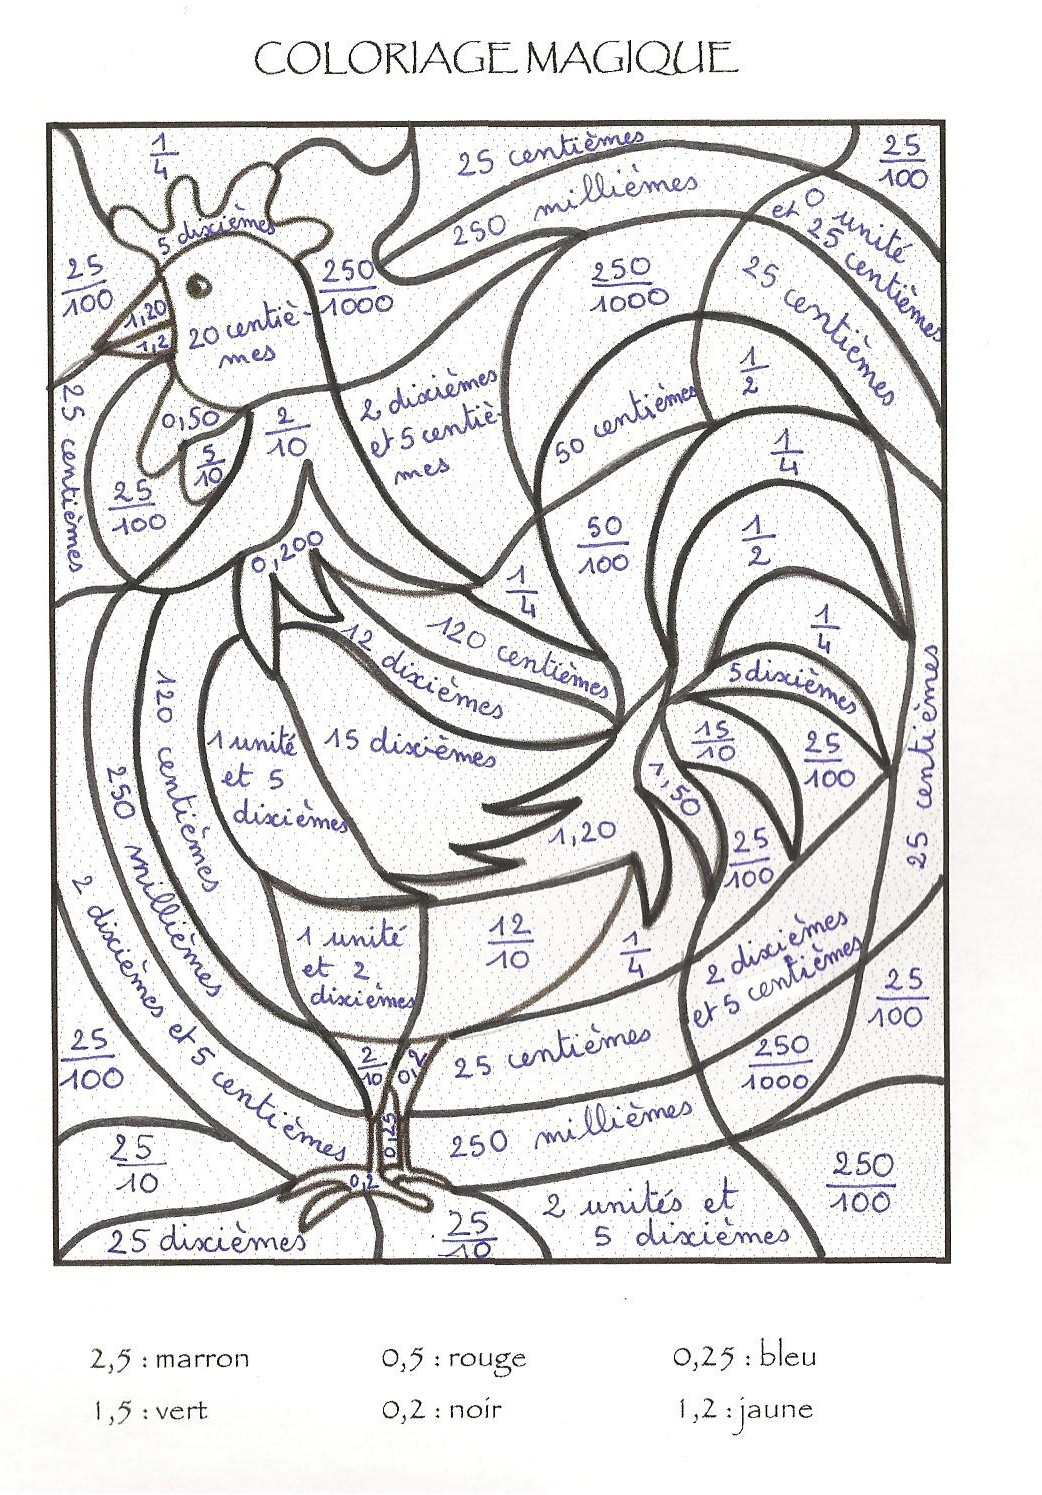 COLORIAGE MAGIQUE
1/4
25 centièmes
25/100
250 millièmes
5 dixièmes
0 unité
et 25
centièmes
25/100
250/1000
250/1000
25 centièmes
1,20
1,2
20 centiè-
mes
1/2
25 centièmes
2 dixièmes
et 5 centiè-
mes
50 centièmes
0,50
2/10
1/4
5/10
25/100
50/100
1/2
0,200
1/4
120 centièmes
1/4
12 dixièmes
5 dixièmes
120 centièmes
25 centièmes
1 unité
et 5
dixièmes
15 dixièmes
15/10
25/100
250 millièmes
1,50
1,20
25/100
2 dixièmes et 5 centièmes
1 unité
et 2
dixièmes
12/10
1/4
2 dixièmes
et 5 centièmes
25/100
25/100
2/10
0,2
25 centièmes
250/1000
0,25
250 millièmes
25/10
0,2
250/100
25 dixièmes
25/10
2 unités et
5 dixièmes
2,5 : marron
0,5 : rouge
0,25 : bleu
1,5 : vert
0,2 : noir
1,2 : jaune